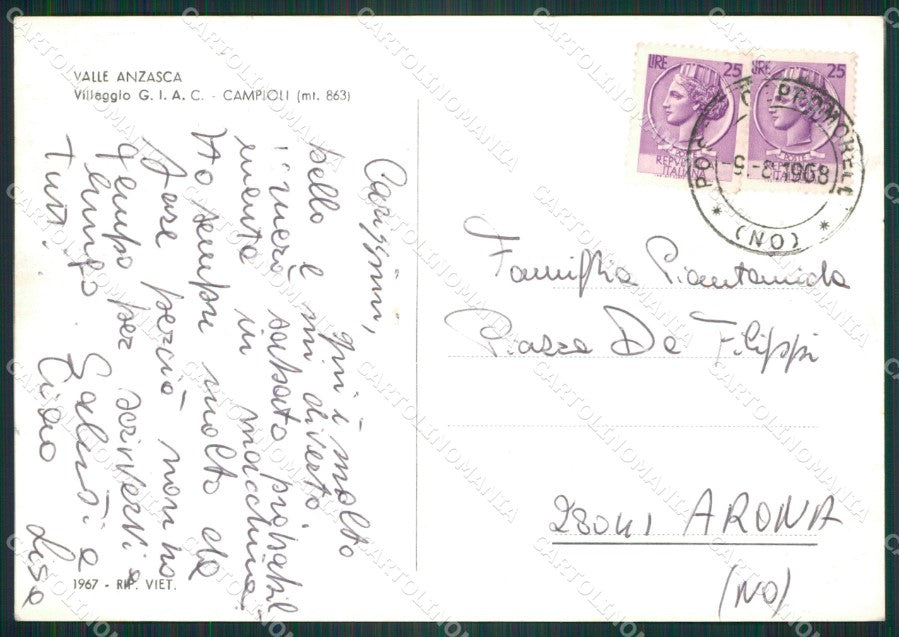 VALLE ANZASCA
Villaggio G. I. A. C. - CAMPIOLI (mt. 863)
Carissimi,
qui è molto
bello e mi diverto.
sabato probabil
mente in macchina
Ho sempre molto da
fare perciò non ho
tempo per scrivervi a
lungo Saluti a
tutti. Ciao Lisa
1967 - RIP. VIET.
LIRE 25
POSTE
REPUBBLICA
ITALIANA
LIRE 25
POSTE
ITALIANA
-9.-8.1968
(NO)
Famiglia Piantanida
Piazza De Filippi
28041 ARONA
(NO)
CARTOLINOMANIA